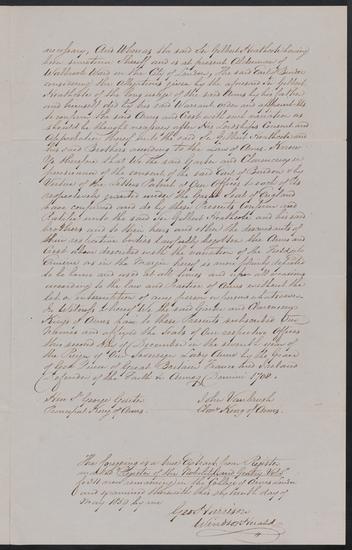 necessary, And Whereas the said Sr Gilbert Heathcote having
been sometime Sheriff and is at present Alderman of
Walbrook Ward in the City of London, The said Earl of Bindon
considering the Allegations given by the aforesaid Sr Gilbert
Heathcote of the long usage of the said Arms by his father
and himself did by his said Warrant order and appoint Us
to confirm the said Arms and Crest with such variation as
should be thought necessary after his Lordships Consent and
Approbation thereof to the said Sr Gilbert Heathcote and
his said Brothers according to the Laws of Arms. Know
Ye therefore that We the said Garter and Clarenceux in
pursuance of the consent of the said Earl of Bindon & by
Virtue of the Letters Patent of Our Offices to each of Us
respectively granted under the Great Seal of England
have confirmed and do by these Presents Confirm and
Ratifie unto the said Sr Gilbert Heathcote and his said
brothers and to their heirs and other the descendants of
their bodies lawfully begotten the Arms and
Crest above described with the variation of the Field of
Ermine as in the Margin hereof is more plainly depicted
to be borne and used at all times and upon all occasions
according to the Law and Practice of Arms without the
let or interruption of any person or persons whatsoever.
In Witness whereof We the said Garter and Clarenceux
Kings of Arms have to these Presents subscribed Our
Names and affixed the Seals of Our respective Offices
this second day of December in the seventh year of
the Reign of Our Sovereign Lady Anne by the Grace
of God Queen of Great Britain France and Ireland
Defender of the Faith &c Annoq Domini 1708.
Hen: St George Garter
Principal King of Arms.
John Vanbrugh
Clarx King of Arms.
The foregoing is a true Extract from Register
of the Nobility and Gentry Vol
remaining in the College of Arms London
and examined therewith this sixteenth day of
May by me
Geo Harrison
Windsor Herald